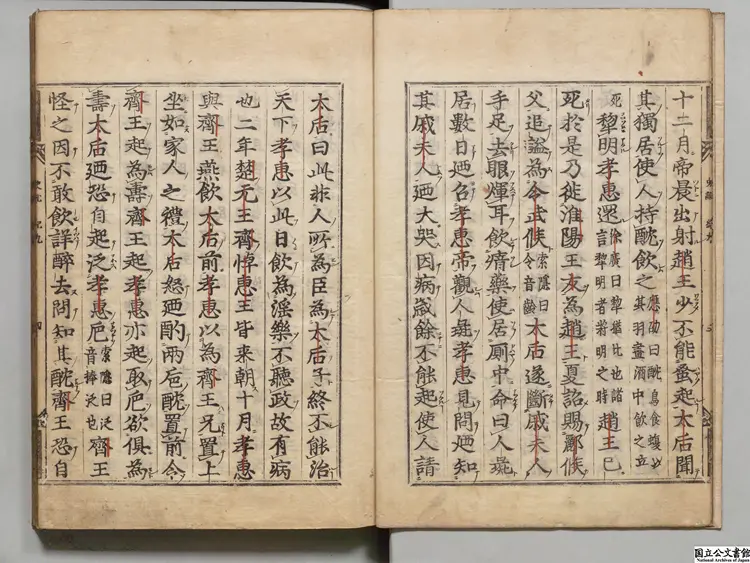 十二月帝晨出射趙王少不能蚤起太后聞
其獨居使人持酖飲之應劭曰酖鳥食蝮以其羽畫酒中飲之立
死犂明孝惠還徐廣曰犂猶比也諸言犂明者將明之時趙王已
死於是乃徙淮陽王友為趙王夏詔賜酈侯
父追謚為令武侯索隱曰令音齡太后遂斷戚夫人
手足去眼煇耳飲瘖藥使居厠中命曰人彘
居數日廼召孝惠帝觀人彘孝惠見問廼知
其戚夫人廼大哭因病歲餘不能起使人請
太后曰此非人所為臣為太后子終不能治
天下孝惠以此日飲為淫樂不聽政故有病
也二年楚元王齊悼惠王皆來朝十月孝惠
與齊王燕飲太后前孝惠以為齊王兄置上
坐如家人之禮太后怒廼酌兩巵酖置前令
齊王起為壽齊王起孝惠亦起取巵欲俱為
壽太后廼恐自起泛孝惠巵索隱曰泛音捧泛也齊王
怪之因不敢飲詳醉去問知其酖齊王恐自
国立公文書館
National Archives of Japan